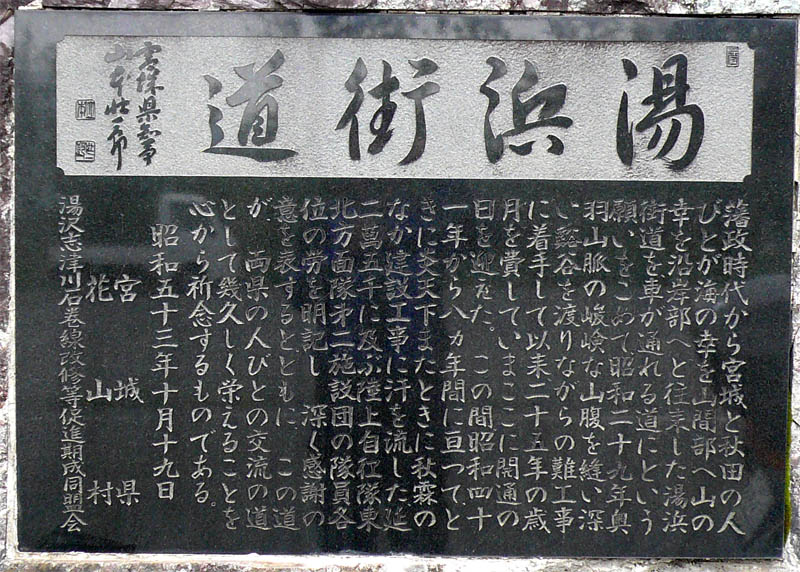 湯浜街道
宮城県知事
山本壮一郎
藩政時代から宮城と秋田の人
びとが海の幸を山間部へ山の
幸を沿岸部へと往来した湯浜
街道を車が通れる道にという
願いをこめて昭和二十九年奥
羽山脈の峻険な山腹を縫い深
い谿谷を渡りながらの難工事
に着手して以来二十五年の歳
月を費していまここに開通の
日を迎えた。この間昭和四十
一年から八ヵ年間に亘つてと
きに炎天下またときに秋霖の
なか建設工事に汗を流した延
二萬五千に及ぶ陸上自衛隊東
北方面隊才二施設団の隊員各
位の労を明記し 深く感謝の
意を表するとともに この道
が 両県の人びとの交流の道
として幾久しく栄えることを
心から祈念するものである。
昭和五十三年十月十九日
宮城県
花山村
湯沢志津川石巻線改修等促進期成同盟会